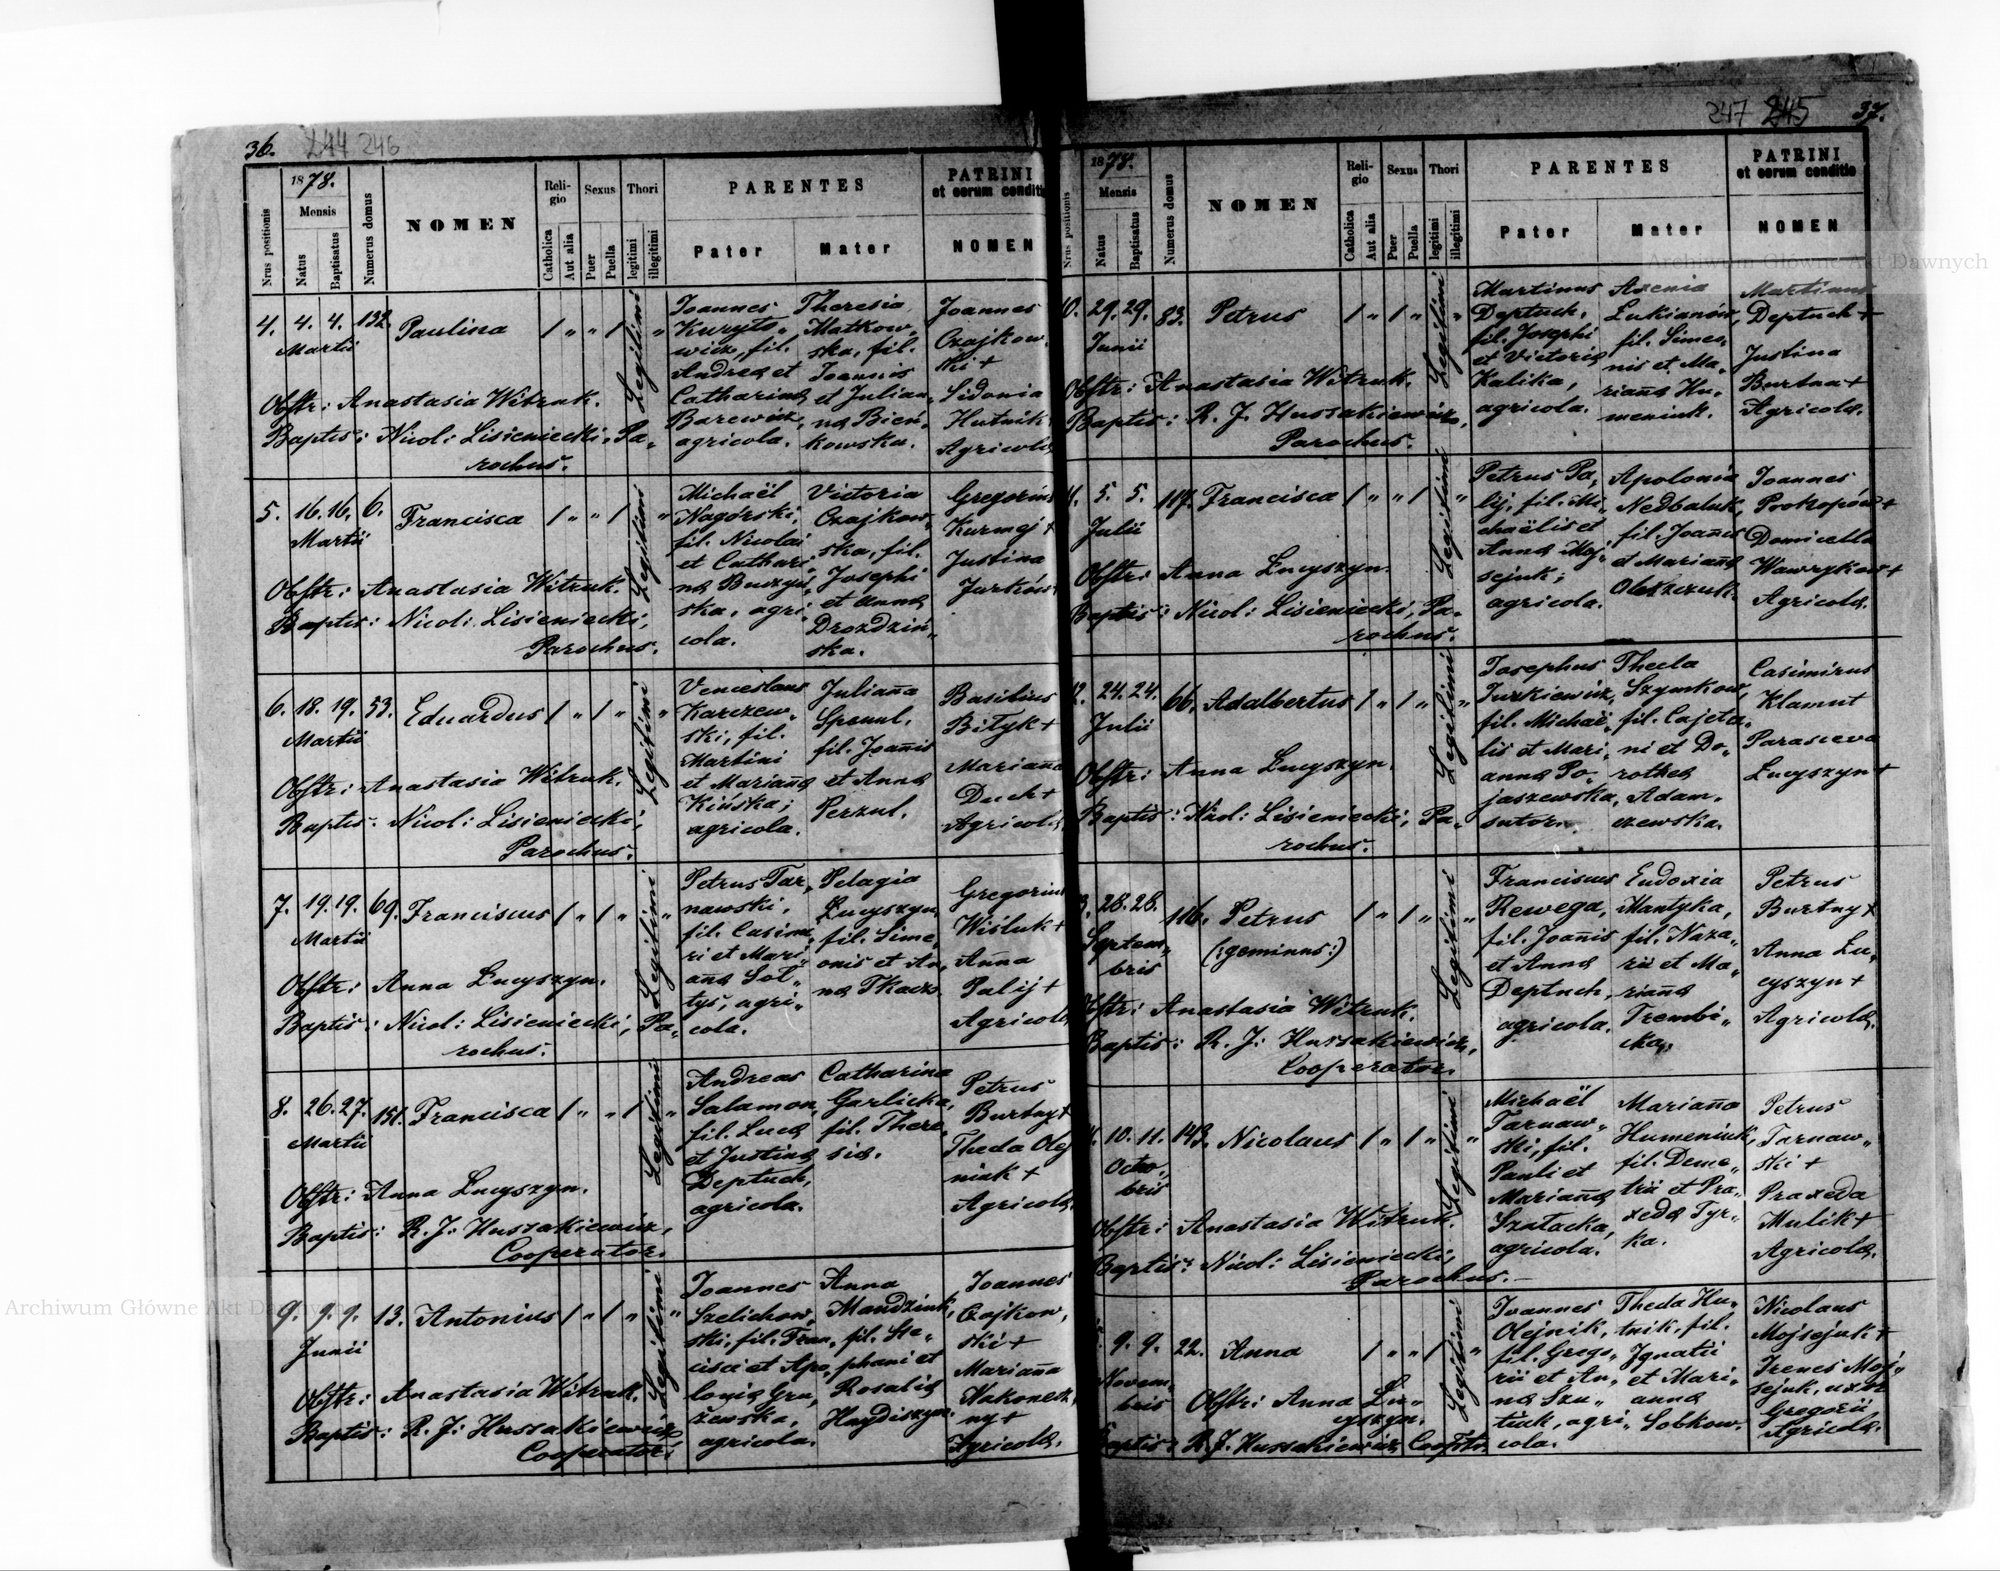 36. 244 246
1878.
Nrus positionis
Mensis
Natus
Baptisatus
Numerus domus
NOMEN
Religio
Catholica
Aut alia
Sexus
Puer
Puella
Thori
legitimi
illegitimi
PARENTES
Pater
Mater
PATRINI
et eorum conditio
NOMEN
4. 4. 4. 132. Paulina / „ „ / Legitimi „
Martii
Obstr: Anastasia Witruk.
Baptis: Nicol: Lisieniecki, Pa-
rochus.
Joannes
Kuryto-
wicz, fil.
Andrea et
Catharina
Barewicz,
agricola.
Theresia
Matkow-
ska, fil.
Joannis
et Julian-
na Bień-
kowska.
Joannes
Czajkow-
ski +
Sidonia
Hutnik
Agricola
5. 16. 16. 6. Francisca / „ „ / Legitimi „
Martii
Obstr: Anastasia Witruk.
Baptis: Nicol: Lisieniecki,
Parochus.
Michaël
Nagórski,
fil. Nicolai
et Cathari-
na Buczyń-
ska, agri-
cola.
Victoria
Czajkow-
ska, fil.
Josephi
et Anna
Drozdziń-
ska.
Gregorius
Kurmej +
Justina
Jurków
6. 18. 19. 53. Eduardus / „ / „ Legitimi „
Martii
Obstr: Anastasia Witruk.
Baptis: Nicol: Lisieniecki,
Parochus.
Venceslaus
Karczew-
ski, fil.
Martini
et Marianna
Kińska;
agricola.
Juliana
Spoul,
fil. Joannis
et Anna
Perzul.
Basilius
Bityk +
Marianna
Duch +
Agricola
7. 19. 19. 69. Franciscus / „ / „ Legitimi „
Martii
Obstr: Anna Lucyszyn.
Baptis: Nicol: Lisieniecki, Pa-
rochus.
Petrus Tar-
nawski,
fil. Casimi-
ri et Mari-
anna Sol-
tys, agri-
cola.
Pelagia
Lucyszyn,
fil. Sime-
onis et An-
na Tkacz.
Gregorius
Wiśluk +
Anna
Palij +
Agricola
8. 26. 27. 151. Francisca / „ „ / Legitimi „
Martii
Obstr: Anna Lucyszyn.
Baptis: R. J: Hussakiewicz,
Cooperator.
Andreas
Salamon,
fil. Luca
et Justina
Deptuch,
agricola.
Catharina
Garlicka,
fil. There-
sia.
Petrus
Burtny +
Theda Olej
niak +
Agricola.
9. 9. 9. 13. Antonius / „ / „ Legitimi „
Junii
Obstr: Anastasia Witruk.
Baptis: R. J: Hussakiewicz
Cooperator.
Joannes
Szelichow-
ski, fil. Fran-
cisci et Apo-
lonia Gru-
żewska,
agricola.
Anna
Mandziuk,
fil. Ste-
phani et
Rosalia
Haydiszyn.
Joannes
Czajkow-
ski +
Marianna
Nakonecz
ny +
Agricola.
247 245 37.
1878.
Nrus positionis
Mensis
Natus
Baptisatus
Numerus domus
NOMEN
Religio
Catholica
Aut alia
Sexus
Puer
Puella
Thori
legitimi
illegitimi
PARENTES
Pater
Mater
PATRINI
et eorum conditio
NOMEN
10. 29. 29. 83. Petrus / „ / „ Legitimi „
Junii
Obstr: Anastasia Witruk.
Baptis: R. J. Hussakiewicz,
Parochus.
Martinus
Deptuch,
fil. Josephi
et Victoria
Kalika,
agricola.
Axenia
Lukianów,
fil. Simeo-
nis et Ma-
rianna Hu-
meniuk.
Martinus
Deptuch +
Justina
Burtna +
Agricola.
5. 5. 117. Francisca / „ „ / Legitimi „
Julii
Obstr: Anna Lucyszyn.
Baptis: Nicol: Lisieniecki, Pa-
rochus.
Petrus Pa-
lij, fil. Mi-
chaëlis et
Anna Moj-
sejuk;
agricola.
Apolonia
Nedbaluk,
fil. Joannis
et Marianna
Olekszuk.
Joannes
Prokopów +
Domicella
Wawryków +
Agricola.
12. 24. 24. 66. Adalbertus / „ / „ Legitimi „
Julii
Obstr: Anna Lucyszyn.
Baptis: Nicol: Lisieniecki, Pa-
rochus.
Josephus
Jurkiewicz,
fil. Michaë-
lis et Mari-
anna Po-
jaszewska,
sutor.
Theda
Szymków,
fil. Cajeta-
ni et Do-
rothea
Adam-
czewska.
Casimirus
Klamut
Parasceva
Lucyszyn +
28. 28. 116. Petrus / „ / „ Legitimi „
Septem-
bris
(:geminus:)
Obstr: Anastasia Witruk.
Baptis: R. J: Hussakiewicz,
Cooperator.
Franciscus
Rewega,
fil. Joannis
et Anna
Deptuch,
agricola.
Eudoxia
Mantyka,
fil. Naza-
rii et Ma-
rianna
Trembi-
cka.
Petrus
Burtny +
Anna Lu-
cyszyn +
Agricola.
10. 11. 143. Nicolaus / „ / „ Legitimi „
Octo-
bris
Obstr: Anastasia Witruk.
Baptis: Nicol: Lisieniecki,
Parochus.
Michaël
Tarnaw-
ski, fil.
Pauli et
Marianna
Szatacka,
agricola.
Marianna
Humeniuk,
fil. Deme-
trii et Pra-
xeda Tyr-
ka.
Petrus
Tarnaw-
ski +
Praxeda
Mulik +
Agricola.
9. 9. 22. Anna / „ „ / Legitimi „
Novem-
bris
Obstr: Anna Lu-
cyszyn.
Baptis: R. J. Hussakiewicz Coopto.
Joannes
Olejnik,
fil. Grego-
rii et An-
na Szu-
tiuk, agri-
cola.
Theda Hu-
tnik, fil.
Ignatii
et Mari-
anna
Sobkow.
Nicolaus
Mojsejuk +
Irenes Moj-
sejuk, uxor
Gregorii
Agricola.
Archiwum Główne Akt Dawnych
Archiwum Główne Akt Dawnych